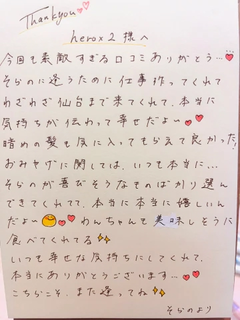 Thankyou
herox2様へ
今回も素敵すぎる口コミありがとう…
そらのに逢うために仕事作ってくれて
わざわざ仙台まで来てくれて、本当に
気持ちが伝わって幸せだよ〜
暗めの髪も気に入ってもらえて良かった!
おみやげに関しては、いつも本当に…
そらのが喜びそうなものばかり選ん
できてくれてて、本当に本当に嬉しいん
だよ〜 わんちゃんも美味しそうに
食べてくれてる
いつも幸せな気持ちにしてくれて、
本当にありがとうございます…
こちらこそ、また逢ってね
そらのより